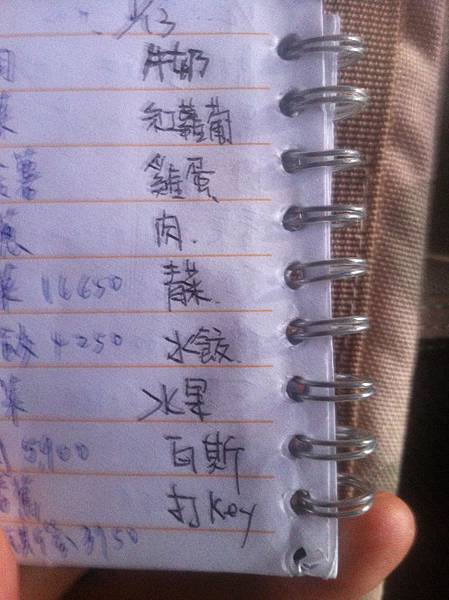 3/13
牛奶
菜 紅蘿蔔
薯 雞蛋
蔥 肉.
菜 16650 青菜.
4250 水餃.
菜 水果
5900 瓦斯
打key
3950